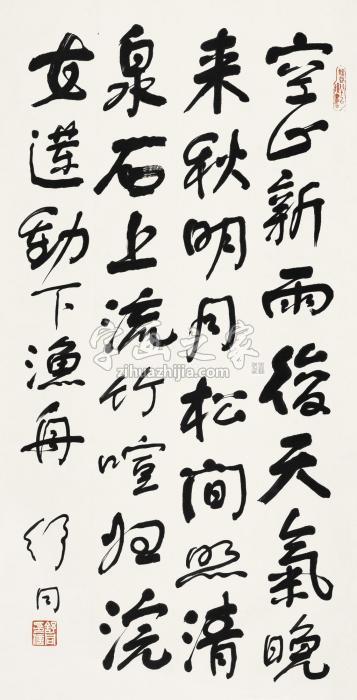 空山新雨後天氣晚
来秋明月松间照清
泉石上流竹喧归浣
女蓮動下漁舟
舒同
字画之家
zihuazhijia.com